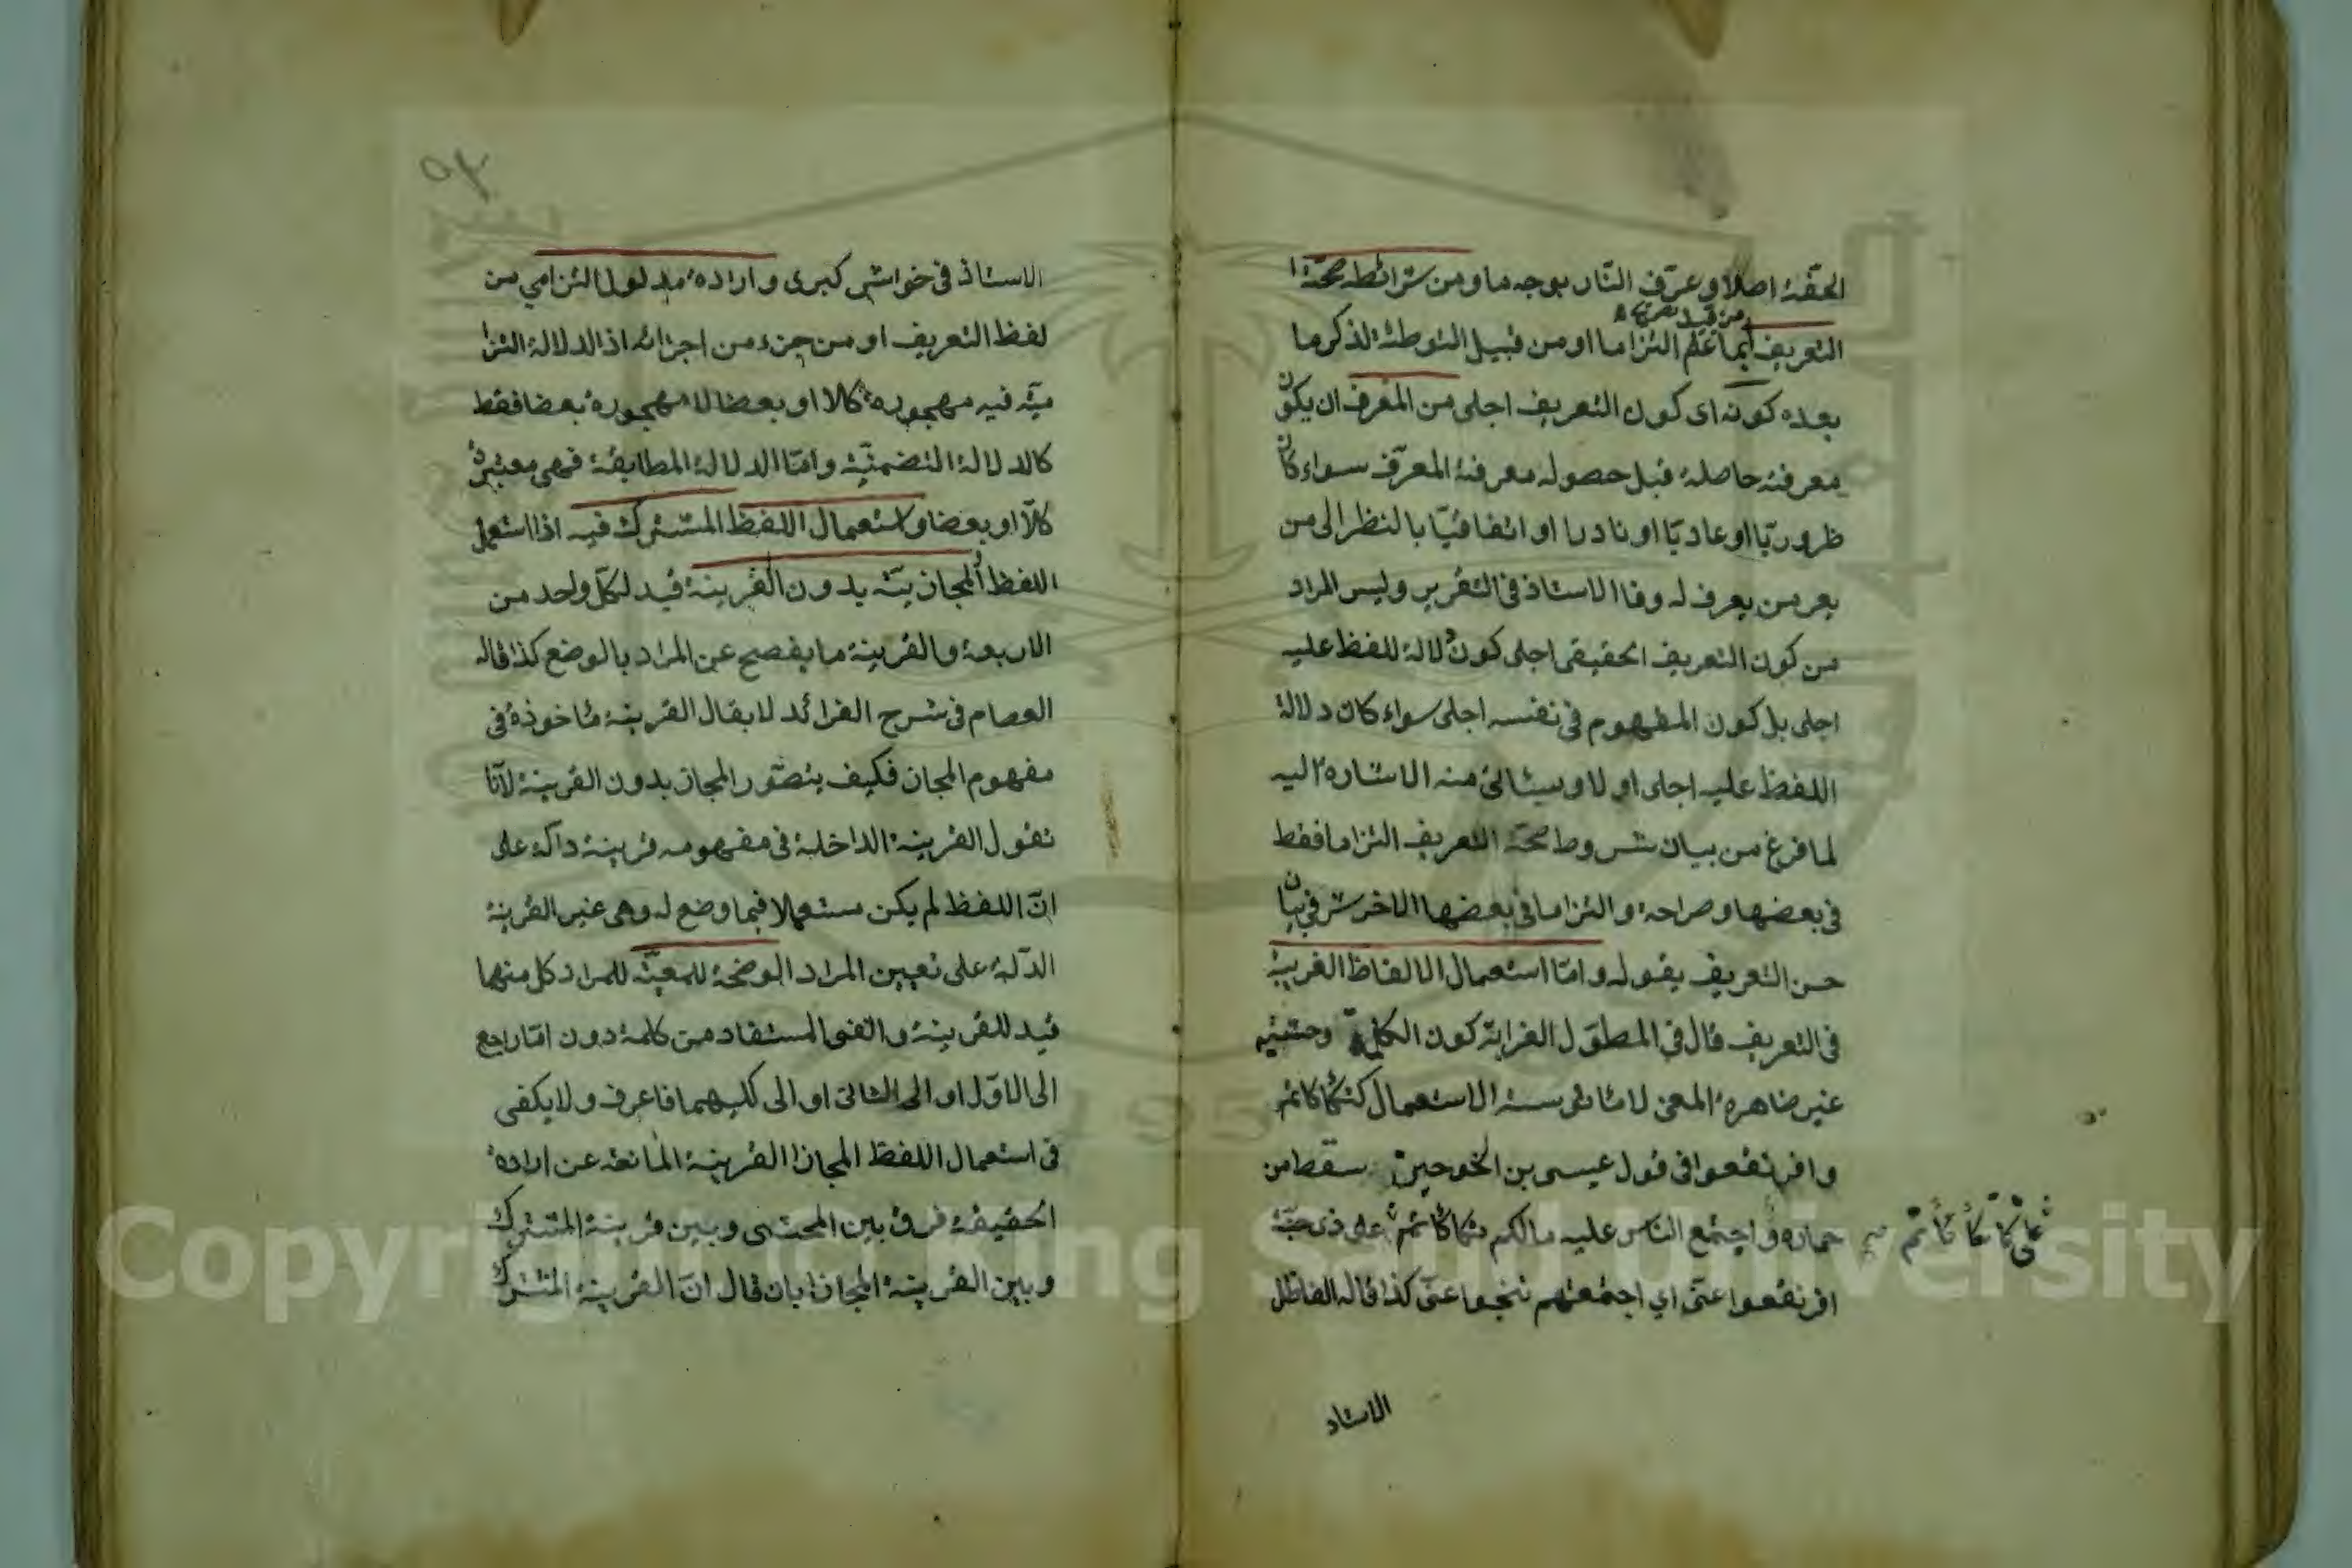 الخفّة اصلا وعرّف النّار بوجه ما ومن شرائطه صحّة
التعريف ايما علم التزاما او من قبيل التوطئة لذكر ما
بعده كونه اى كون التعريف اجلى من المعرف ان يكون
معرفته حاصلة قبل حصوله معرفة المعرّف سواء كان
ظروريّا او عاديّا او نادرا او اتفاقيّا بالنظر الى من
يعرمن يعرف له وفا الاستاذ فى التقرير وليس المراد
من كون التعريف الحقيقى اجلى كون دلالة للفظ عليه
اجلى بل كون المفهوم فى نفسه اجلى سواء كان دلالة
اللفظ عليه اجلى او لا وسيئاتى منه الاشارة اليه
لما فرغ من بيان شروط صحّة التعريف التزاما فقط
فى بعضها وصراحة والتزاما فى بعضها الاخر شرفى بيان
حسن التعريف بقوله وامّا استعمال الالفاظ الغريبة
فى التعريف قال فى المطوّل الغرابة كون الكلمة وحشية
غير ضاهرة المعنى لا مئانئوسة الاستعمال كتكأكأتم
وافرنقعوا فى قول عيسى بن الخوحين سقط من
حماره واجتمع الناس عليه مالكم تكأكأتم على ذى جنّة
افرنقعوا عنّى اي اجتمعتم تنحوا عنّى كذا قاله الفاظل
الاستاد
الاستاذ فى خواشى كبرى وارادة مدلول التزامي من
لفظ التعريف او من جزء من اجزائه اذ الدلالة التزا
ميّه فيه مهجورة كلا او بعضا لا مهجورة بعضا فقط
كالدلالة التضمنيّة وامّا الدلالة المطابقة فهى معتبرة
كلّا او بعضا واستعمال اللفظ المشترك فيه اذا استعمل
اللفظ المجازيّة بدون القرينة قيد لكلّ واحد من
الاربعة والقرينة ما يفصح عن المراد بالوضع كذا قاله
العصام فى شرح الفرائد لا يقال القرينة مأخوذة فى
مفهوم المجاز فكيف يتصّور المجاز بدون القرينة لأنّا
نقول القرينة الداخلة فى مفهومه قرينة دالّة على
انّ اللفظ لم يكن مستعملا فيما وضع له وهى غير القرينة
الدّلة على تعيين المراد الوضحة للمعيّنة للمراد كل منهما
قيد للقرينة والنفى المستفاد من كلمة دون امّا راجع
الى الاوّل او الى الثانى او الى كليهما فاعرف ولا يكفى
فى استعمال اللفظ المجاز القرينة المانعة عن ارادة
الحقيقة فرق بين المحشى وبين قرينة المشترك
وبين القرينة المجاز بان قال انّ القرينة المشترك
Copyright © King Saud University